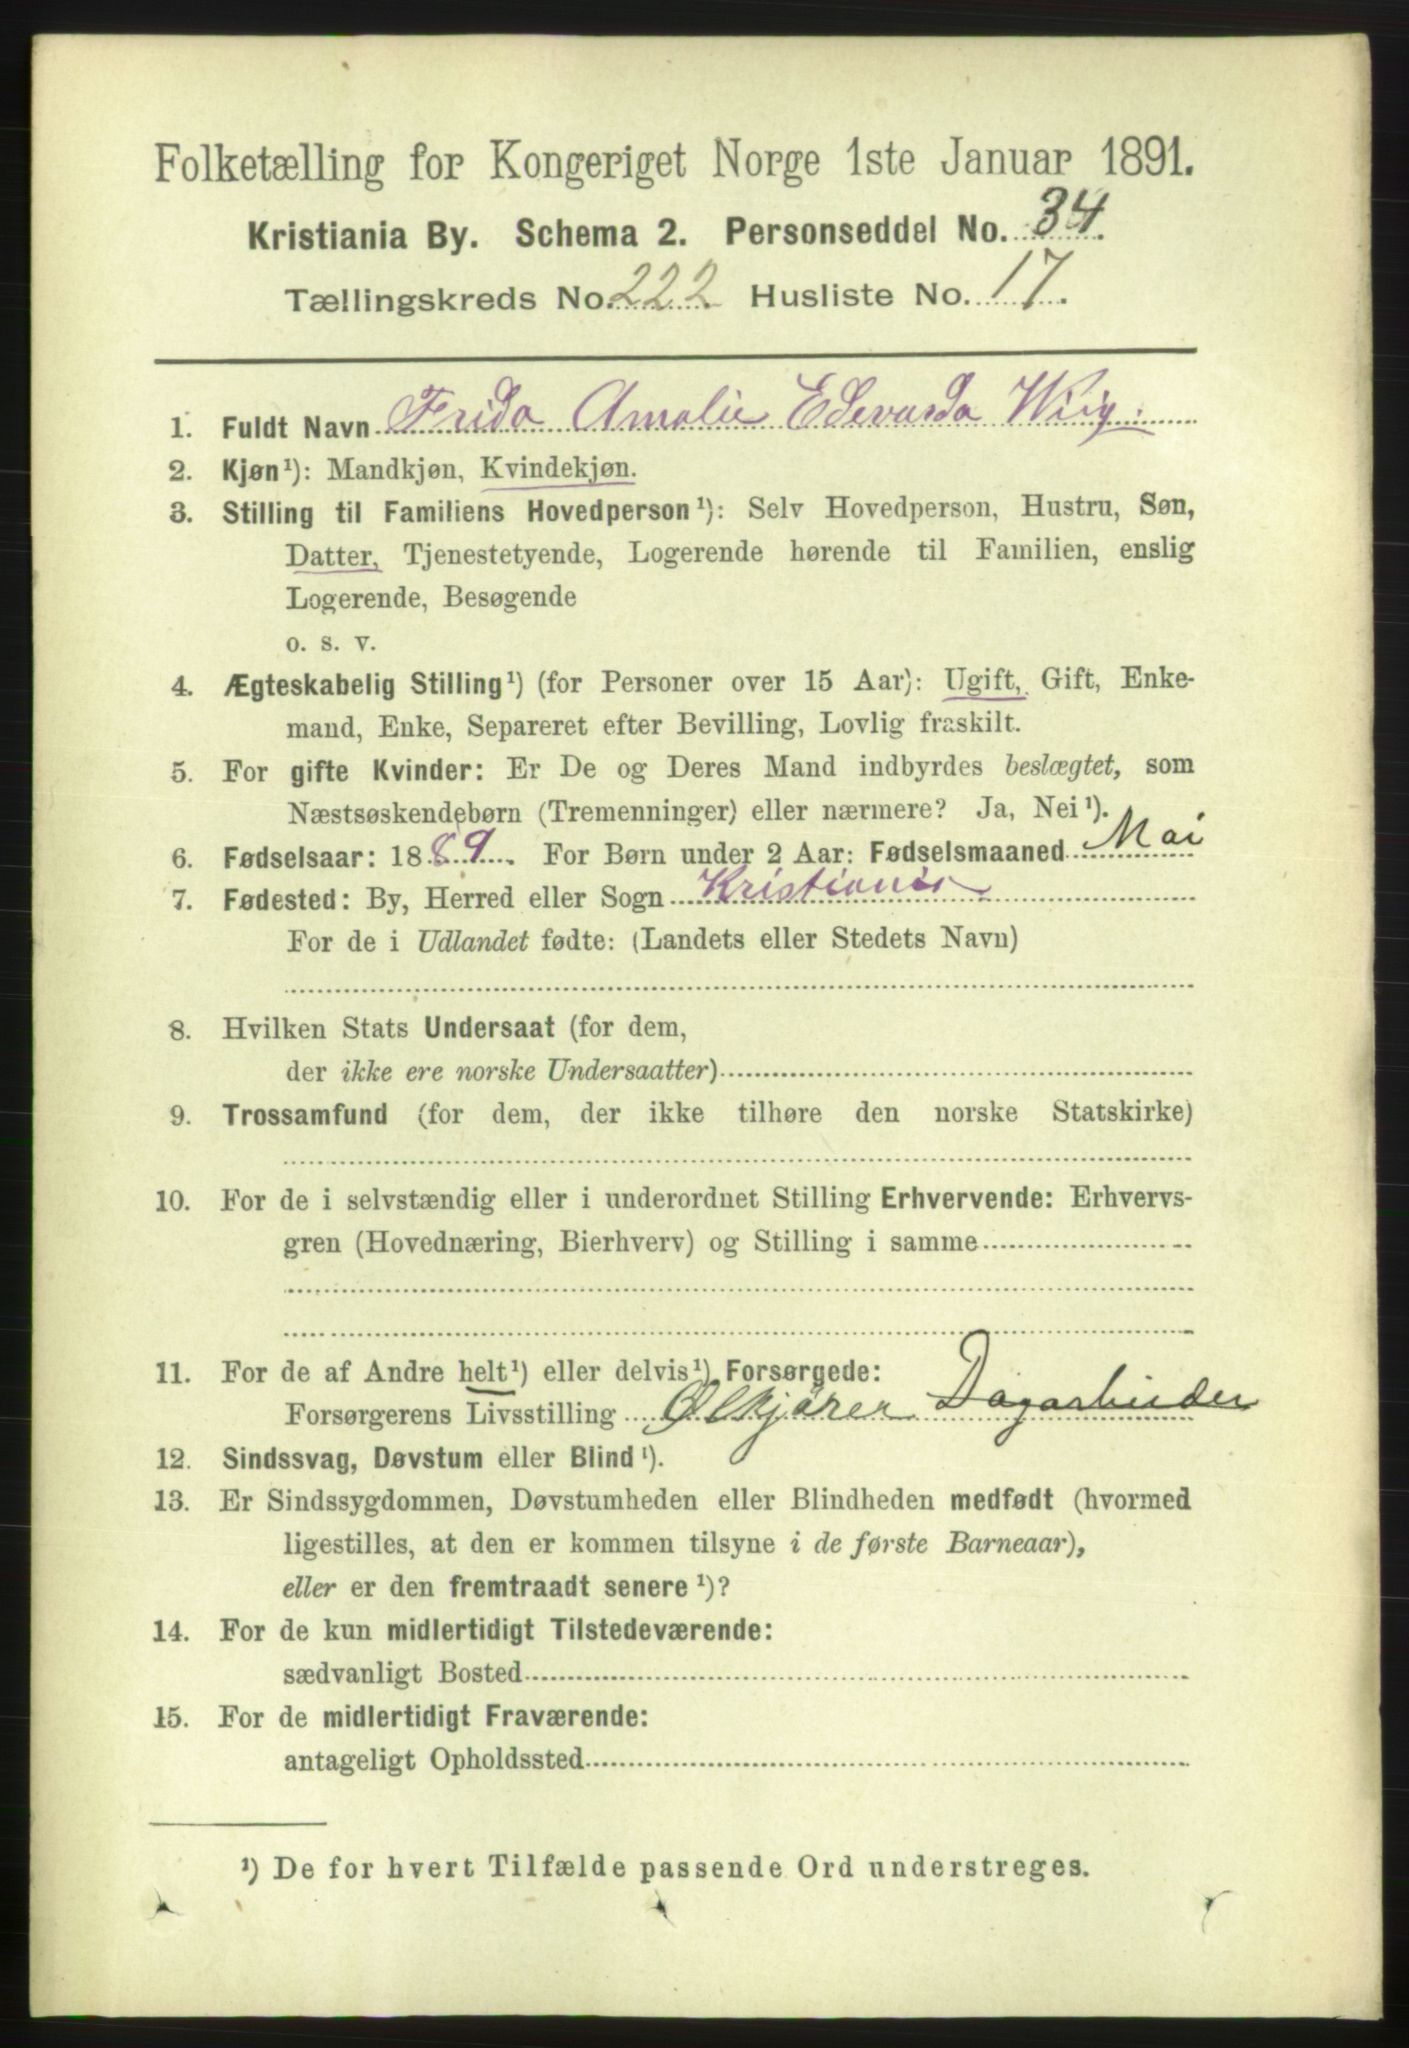 Folketælling for Kongeriget Norge 1ste Januar 1891.
Kristiania By. Schema 2. Personseddel No. 34.
Tællingskreds No. 222 Husliste No. 17.
1. Fuldt Navn Frida Amalie Edevarda Wiig.
2. Kjøn¹): Mandkjøn, Kvindekjøn.
3. Stilling til Familiens Hovedperson¹): Selv Hovedperson, Hustru, Søn,
Datter, Tjenestetyende, Logerende hørende til Familien, enslig
Logerende, Besøgende
o. s. v.
4. Ægteskabelig Stilling¹) (for Personer over 15 Aar): Ugift, Gift, Enke-
mand, Enke, Separeret efter Bevilling, Lovlig fraskilt.
5. For gifte Kvinder: Er De og Deres Mand indbyrdes beslægtet, som
Næstsøskendebørn (Tremenninger) eller nærmere? Ja, Nei¹).
6. Fødselsaar: 1889. For Børn under 2 Aar: Fødselsmaaned Mai
7. Fødested: By, Herred eller Sogn Kristiania
For de i Udlandet fødte: (Landets eller Stedets Navn)
8. Hvilken Stats Undersaat (for dem,
der ikke ere norske Undersaatter)
9. Trossamfund (for dem, der ikke tilhøre den norske Statskirke)
10. For de i selvstændig eller i underordnet Stilling Erhvervende: Erhvervs-
gren (Hovednæring, Bierhverv) og Stilling i samme
11. For de af Andre helt¹) eller delvis¹) Forsørgede:
Forsørgerens Livsstilling Ølkjører Dagarbeider
12. Sindssvag, Døvstum eller Blind¹).
13. Er Sindssygdommen, Døvstumheden eller Blindheden medfødt (hvormed
ligestilles, at den er kommen tilsyne i de første Barneaar),
eller er den fremtraadt senere¹)?
14. For de kun midlertidigt Tilstedeværende:
sædvanligt Bosted
15. For de midlertidigt Fraværende:
antageligt Opholdssted
¹) De for hvert Tilfælde passende Ord understreges.